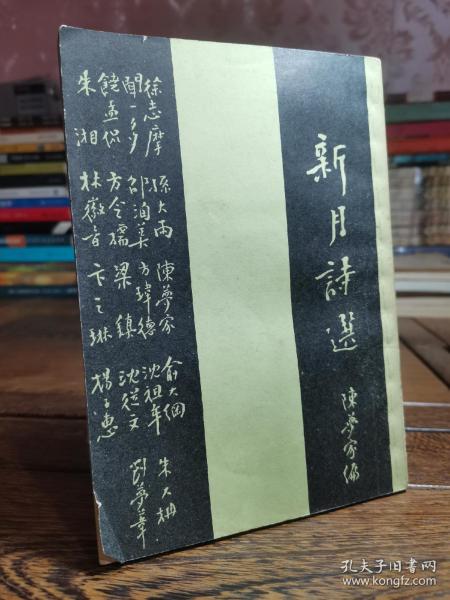 新月詩選
陳夢家編
徐志摩
聞一多
饒孟侃
朱湘
孫大雨
邵洵美
方令孺
林徽音
陳夢家
方瑋德
梁鎮
卞之琳
俞大綱
沈祖牟
沈從文
楊子惠
朱大枬
劉夢葦
孔夫子旧书网
www.kongfz.com